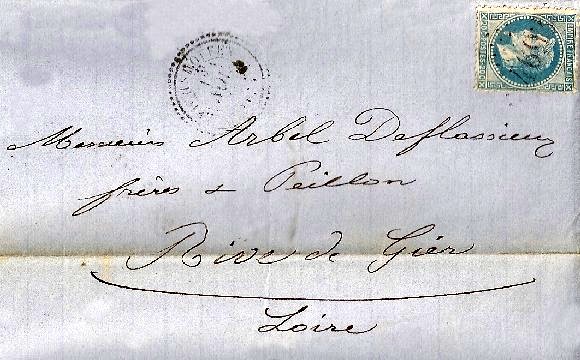 EMPIRE FRANÇAIS
Messieurs Arbel Deflassieux
frères & Peillon
Rive de Gier
Loire